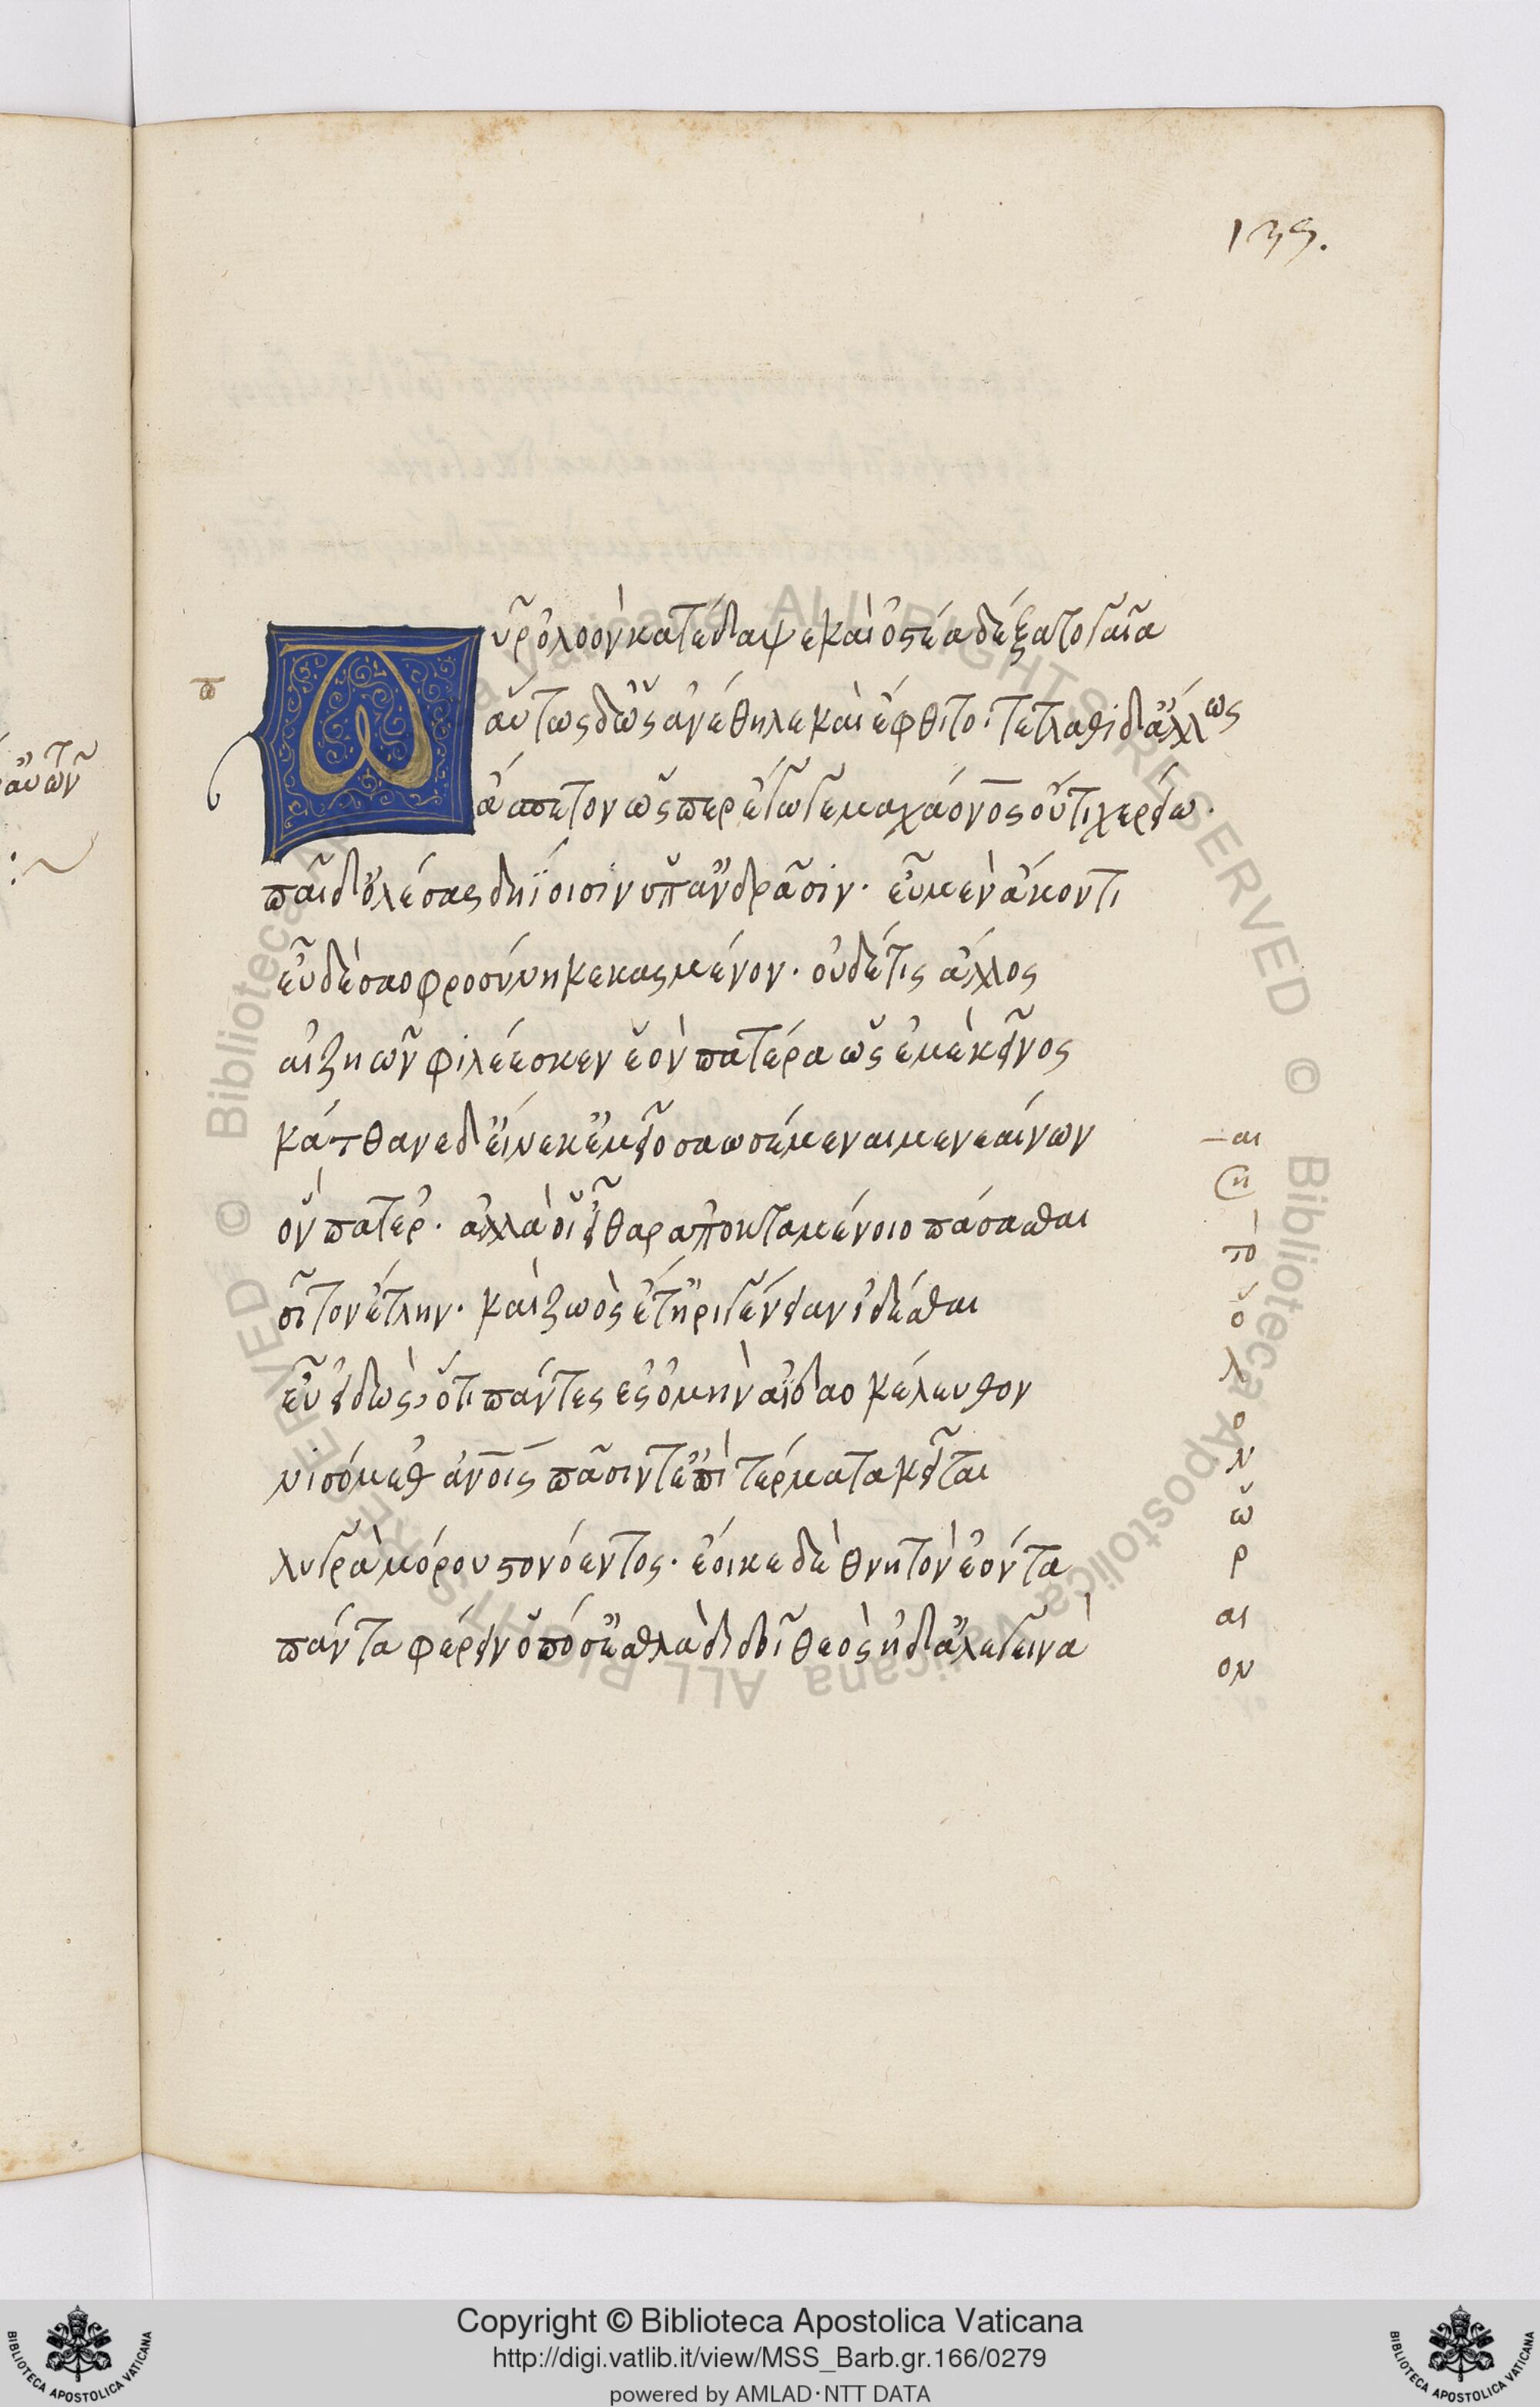 135.
υῦρ ὀλοὸν κατέδαψε καὶ ὀστέα δέξατο γαῖα
αὔτως δ' ὣς ἀνέθηλε καὶ ἔφθιτο· τέτλαθι δ' ἄλλως
ἄσπετον ὥς περ ἔγωγε μαχάονος οὔτι χερείω.
παῖδ' ὀλέσας δηΐοισιν ὑπ' ἀνδράσιν. εὖ μὲν ἄκοντι
εὖ δὲ σαοφροσύνῃ κεκασμένον. οὐδέ τις ἄλλος
αἰζηῶν φιλέεσκεν ἑὸν πατέρα ὡς ἐμὲ κεῖνος
κάτθανε δ' εἵνεκ' ἐμεῖο σαωσέμεναι μενεαίνων
ὃν πατέρ. ἀλλά οἱ εἶθαρ ἀποκταμένοιο πάσασθαι
σῖτον ἔτλην. καὶ ζωὸς ἔτ' ἠριγένειαν ἰδέσθαι
εὖ εἰδὼς, ὅτι πάντες ἐς ὁμὴν ἀΐδαο κέλευθον
νισόμεθ' ἄνοις πᾶσίν τ' ἐπὶ τέρματα κεῖται
λυγρὰ μόρου στονόεντος. ἔοικε δὲ θνητὸν ἐόντα
πάντα φέρειν ὁπόσ' ἐσθλὰ διδοῖ θεὸς ἠδ' ἀλεγεινὰ
π
αι
η
το
ὁ
λ
ο
ν
ω
ρ
αι
ον
Copyright © Biblioteca Apostolica Vaticana
http://digi.vatlib.it/view/MSS_Barb.gr.166/0279
powered by AMLAD·NTT DATA
BIBLIOTECA APOSTOLICA VATICANA
BIBLIOTECA APOSTOLICA VATICANA